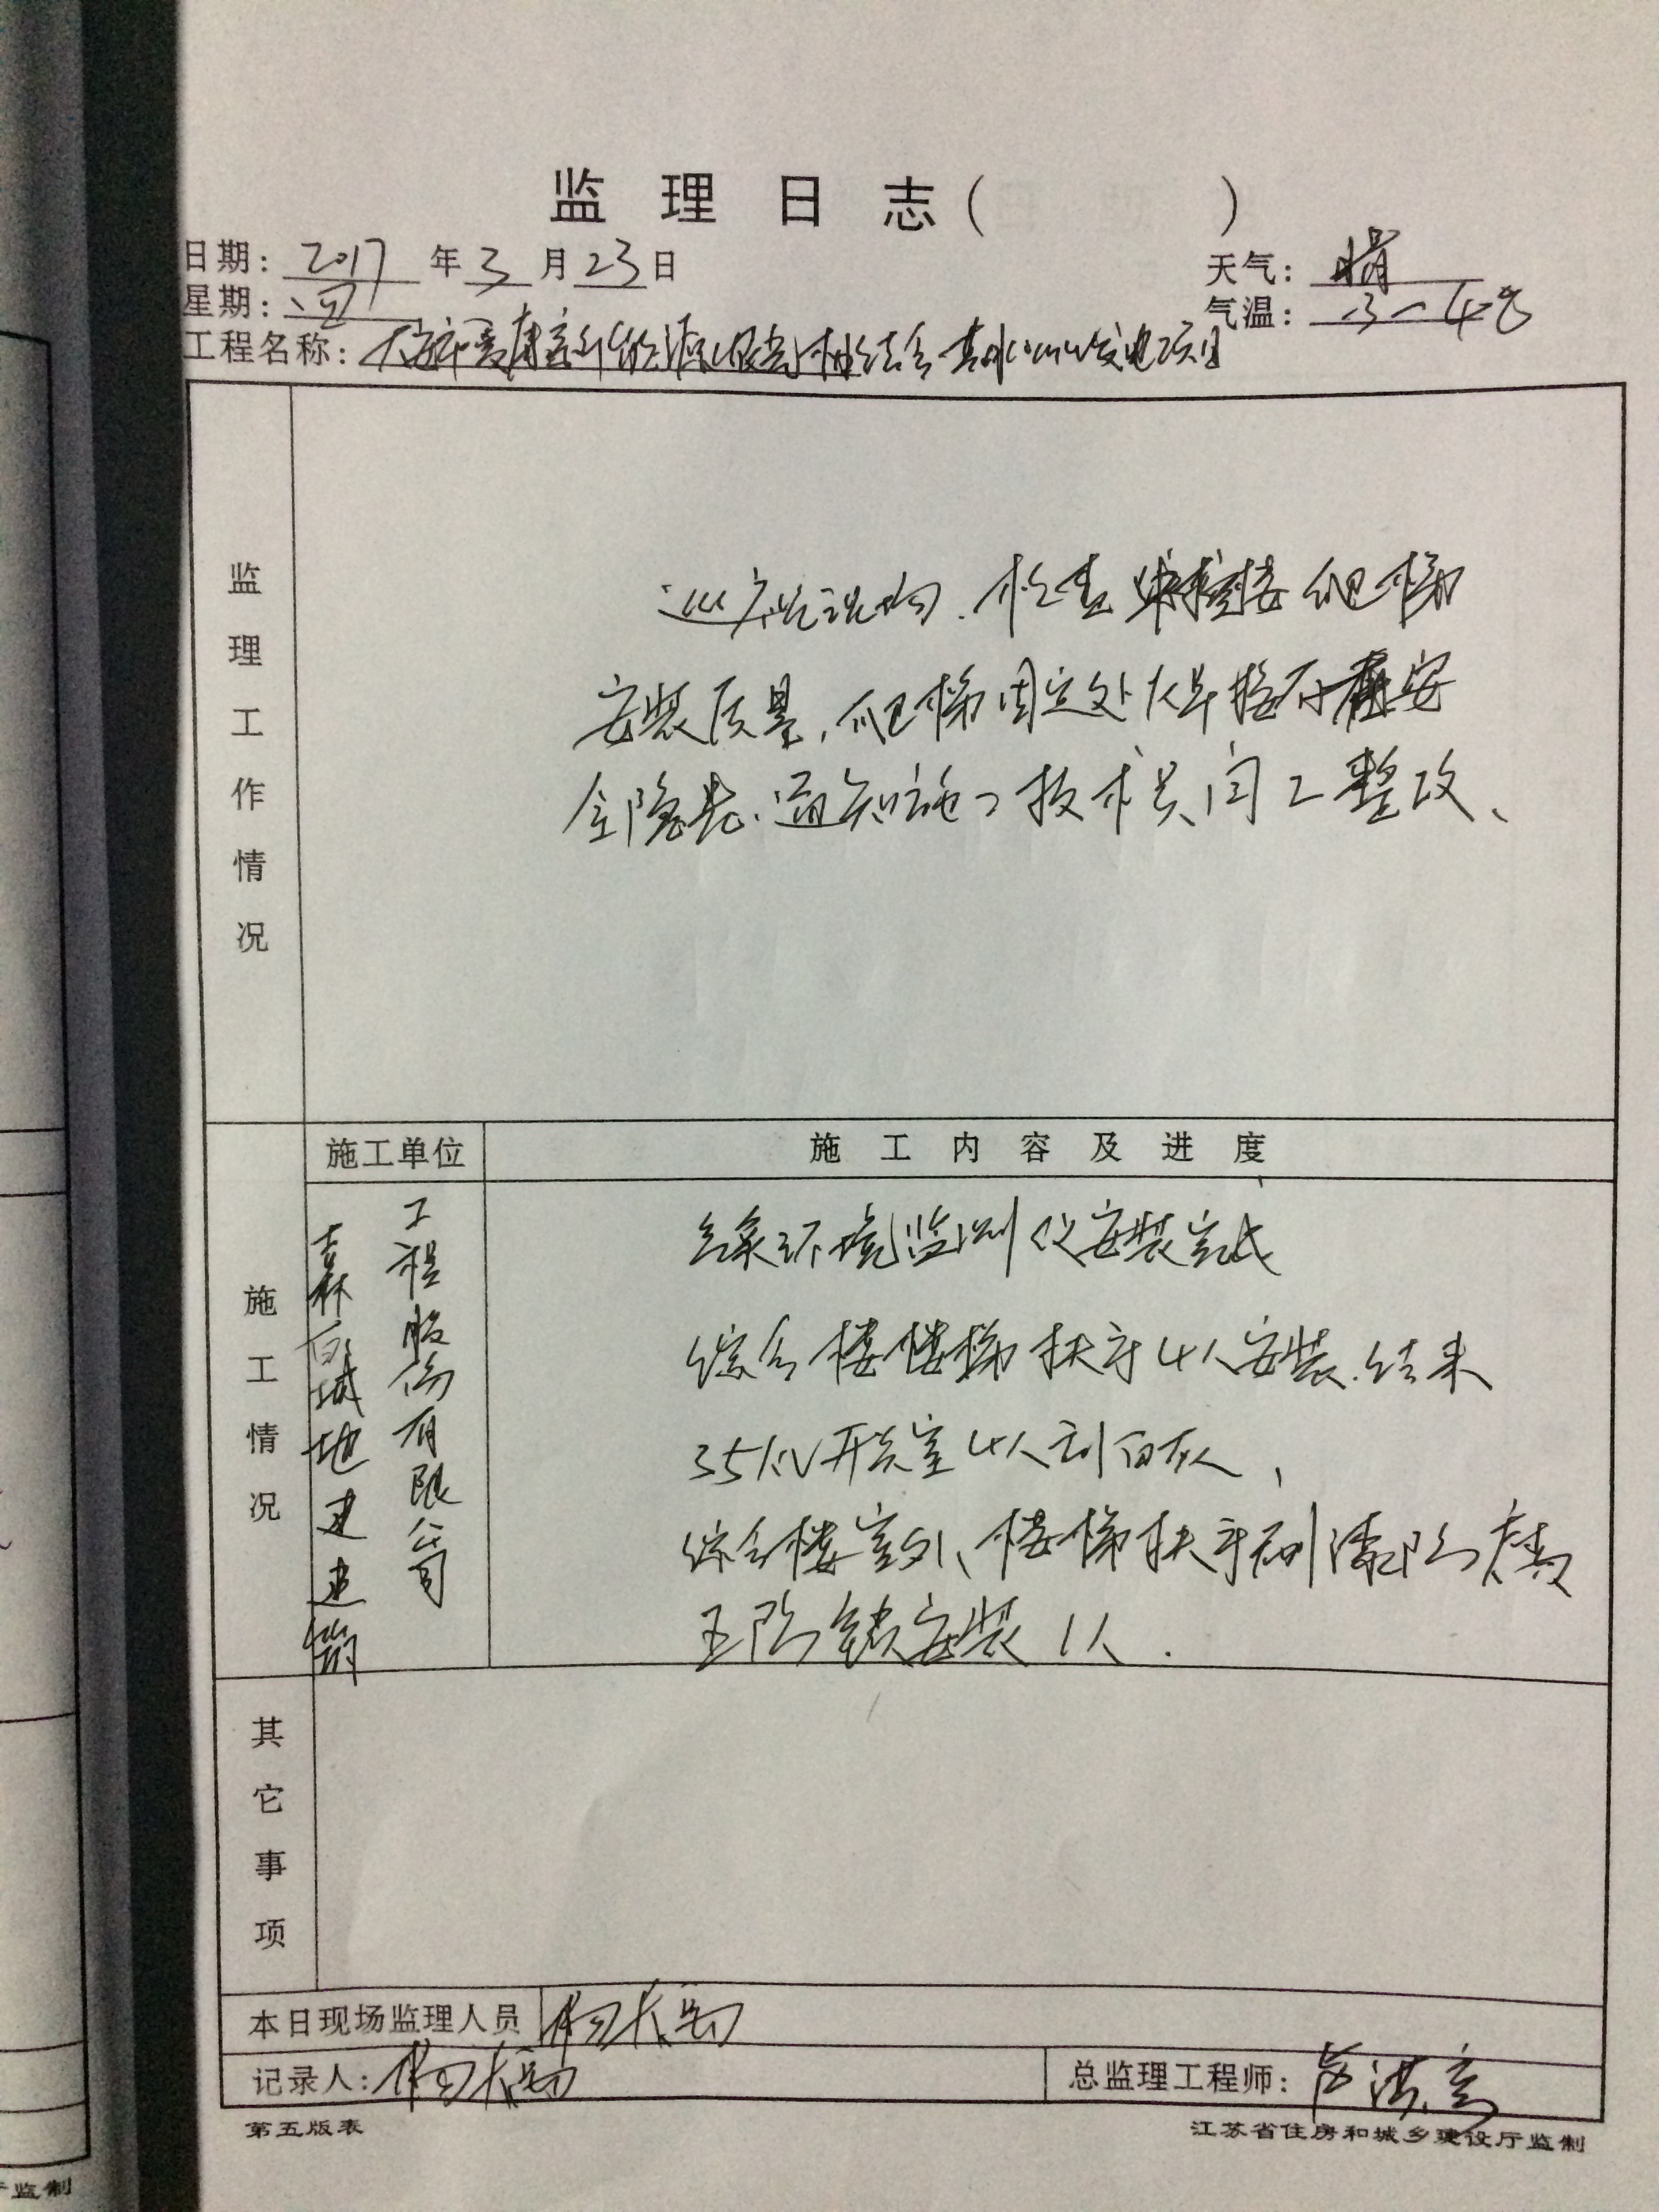 监理日志( )
日期: 2017 年 3 月 23 日
天气: 晴
星期: 四
气温: -3~4℃
工程名称: 大安市爱康新能源 结合 发电项目
监理工作情况
巡视现场.检查 楼爬梯
安装质量,爬梯固定处焊接不 安
全隐患.通知施工技术员闫工整改、
施工单位
施工内容及进度
施工情况
吉林白城地建建筑
工程股份有限公司
环境监测仪安装完成
综合楼楼梯扶手4人安装.结束
35KV开关室4人刮白灰、
综合楼室外、楼梯扶手刷漆
安装1人.
其它事项
本日现场监理人员
记录人:
总监理工程师:
第五版表
江苏省住房和城乡建设厅监制
厅监制